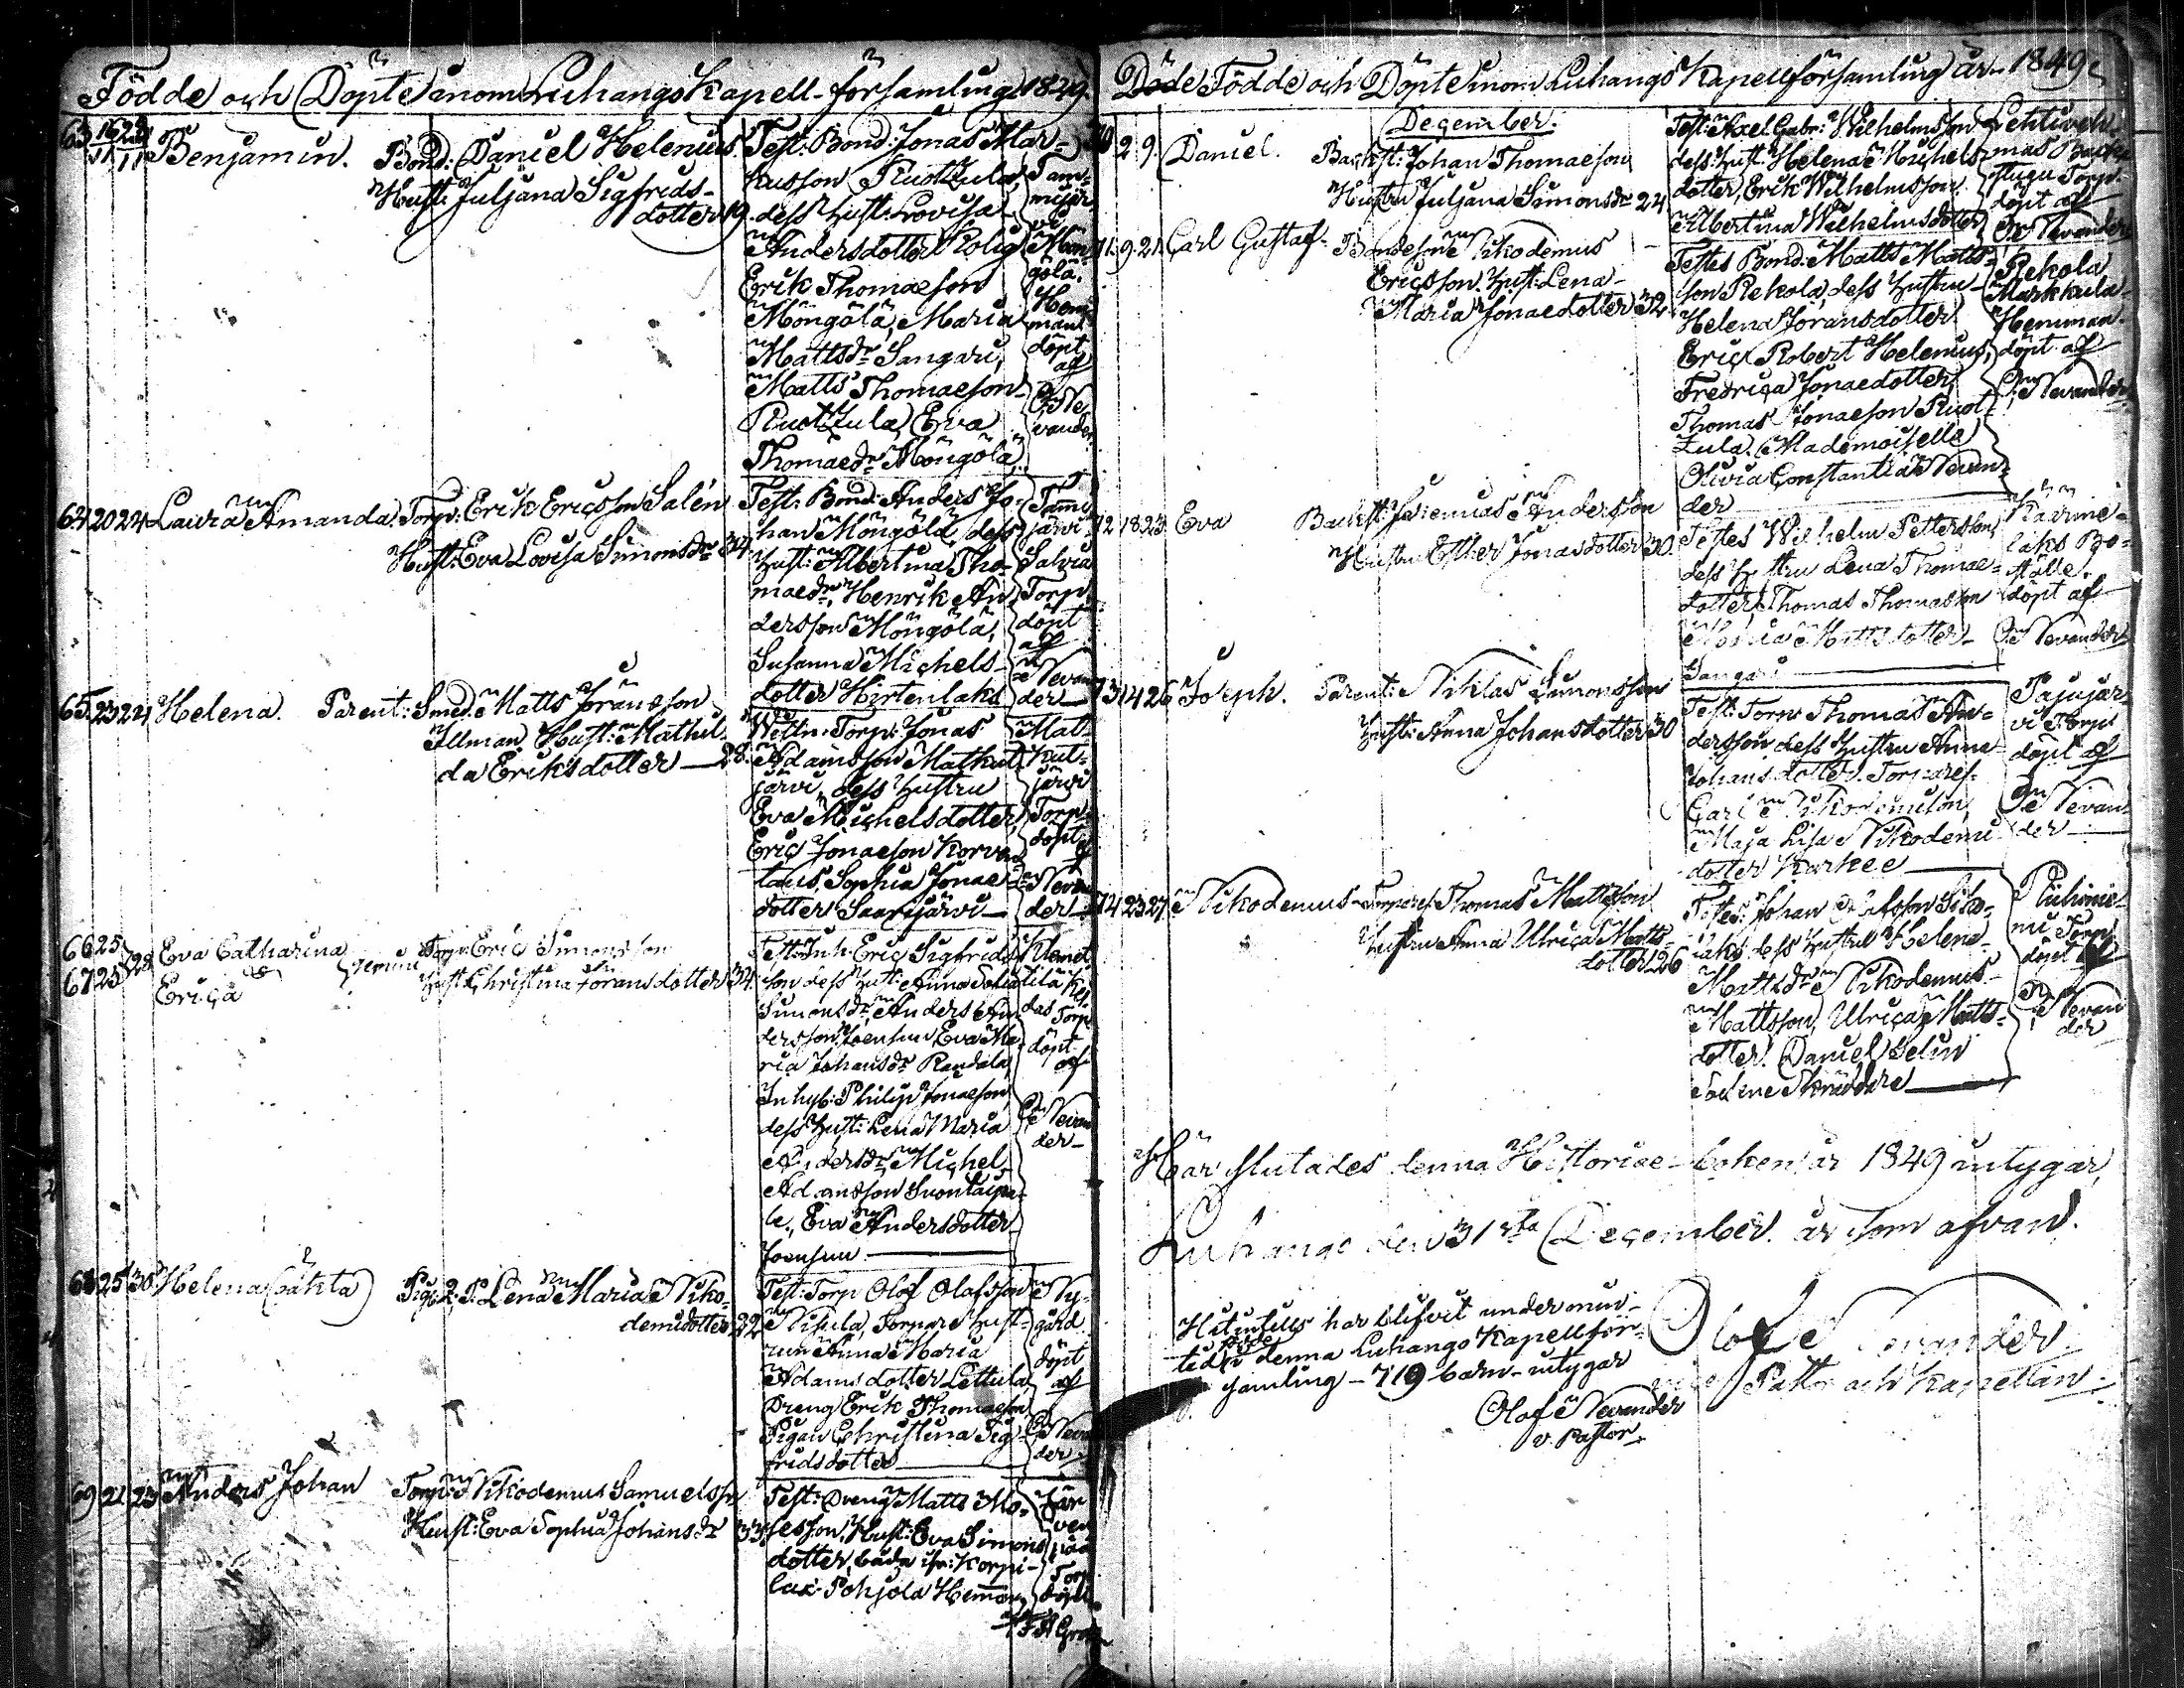 Födde och Döpte inom Luhangs Kapell-församling 1849.
63 16 23 Benjamin. Bond: Daniel Helenius
Hust: Juljana Sigfrids-
dotter 19.
Test: Bond: Jonas Mar-
kusson Ruotzula,
dess hust: Lovisa
Andersdotter Rolig
Erik Thomaeson
Möngölä, Maria
Mattsdr Sangari,
Matts Thomaeson
Ruotzula, Eva
Thomaedr Möngölä,
Tam-
mijär-
vi
Mön-
gölä.
Hem-
man
döpt
af
O. Ne-
vander
64 20 24 Laura Amanda. Torp: Erik Ericsson Salén
Hust: Eva Lovisa Simonsdr 34
Test: Bond: Anders Jo-
han Möngölä, dess
hust: Albertina Tho-
maedr, Henrik An-
dersson Möngölä,
Susanna Michels-
dotter Hirtenlaks
Tammi
järvi
Salvia
Torp,
döpt
af
Nevan
der
65. 23 24 Helena. Parent: Smed: Matts Joransson
Allman, Hust: Mathil-
da Eriksdotter 28.
Torp: Jonas
Adamsson Matkut
järvi, dess hustru
Eva Michelsdotter,
Eric Jonaeson Korven
taus, Sophia Jonae-
dotter Saarijärvi
Mat-
kut-
järvi
Torp
döpt
af
Nevan
der
66 25
67 25 } 28 Eva Catharina
Erica } gemini Torp: Eric Simonsson
Hust: Christina Joransdotter 34.
Test: Inh: Eric Sigfrids
son dess hust: Anna Sofia
Simonsdr, Anders An-
dersson Joensuu Eva Ma-
ria Johansdr Randala,
Inhyb: Philip Jonaeson,
dess hust: Lena Maria
Andersdr, Michel
Adamsson
Eva Andersdotter
Joensuu
Klemet
tilä
das Torp
döpt
af
O Nevan
der
68 25 30 Helena (oäkta) Pig: Lena Maria Niko-
demidotter 22
Test: Torp Olof Olofsson
Nisula, Torpare hust-
run Anna Maria
Adamsdotter Lettula
Dreng Erik Thomaeson,
Pigan Christina Sig-
fridsdotter
Ny-
gård
döpt
af
O Nevan
der
69 21 23 Anders Johan Torp: Nikodemus Samuelsson
Hust: Eva Sophia Johansdr 33.
Test: Dreng Matts Mo-
sesson, Hust: Eva Simons
dotter, båda ifr: Korpi-
lax Pohjola Hemman,
Jär
ven
pää
Torp
döpt
Döde Födde och Döpte inom Luhangs Kapellförsamling år 1849.
December.
70 2 9. Daniel. Backst: Johan Thomaeson
Hustru Juljana Simonsdr 24
Test: Axel Gabr: Wilhelmsson
dess hust: Helena Michels-
dotter, Erik Wilhelmsson
Albertina Wilhelmsdotter
Lehtiveh-
mas Back
stugu Torp.
döpt af
O Nevander
71. 9. 21. Carl Gustaf. Bondeson Nikodemus
Ericsson, Hust: Lena
Maria Jonaedotter 32
Testes Bond: Matts Matts-
son Rekola, dess hustru
Helena Joransdotter
Eric Robert Helenius,
Fredrica Jonaedotter,
Thomas Jonaeson Ruot-
zula. Mademoiselle
Olivia Constantia Nevan-
der
Rekola
Markkula
Hemman.
döpt af
O: Nevander
72 18 23 Eva Backst: Jeremias Andersson
Hustru Esther Jonasdotter 30
Testes Wilhelm Pettersson,
dess hustru Lena Thomae-
dotter, Thomas Thomasson
Maria Mattsdotter
Sangari
Kärme-
laks Bo-
ställe.
döpt af
O Nevander
73 14 26 Joseph. Parent: Niklas Simonsson
Hust: Anna Johansdotter 30
Test: Torp: Thomas An-
dersson dess hustru Anna
Johansdotter. Torparef.
Carl
Maja Lisa Nikodemi
dotter Karkee
Pajujär-
vi Torp
döpt af
O Nevan-
der
74 23 27 Nikodemus Torparef Thomas Mattsson
hustru Anna Ulrica Matts-
dotter 26
Testes: Johan
dess hustru Helena
Mattsdr Nikodemus
Mattsson, Ulrica Matts-
dotter. Daniel Selin
Sockne Skräddare
Riuhonie-
mi Torp
döpt af
O Nevan
der
Här slutades denna Historiae-boken år 1849 intygar,
Luhango den 31sta December år som ofvan.
Olof Nevander
vice Pastor och Kapellan.
Hitintills har blifvit under min
tid födde i denna Luhangs Kapellför-
samling - 719 barn - intygar
Olof Nevander
v. Pastor.